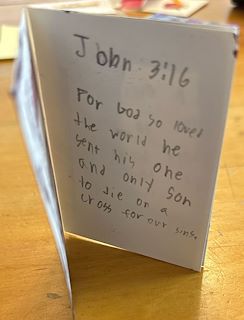 John 3:16
For God so loved
the world he
sent his one
and only son
to die on a
cross for our sins.